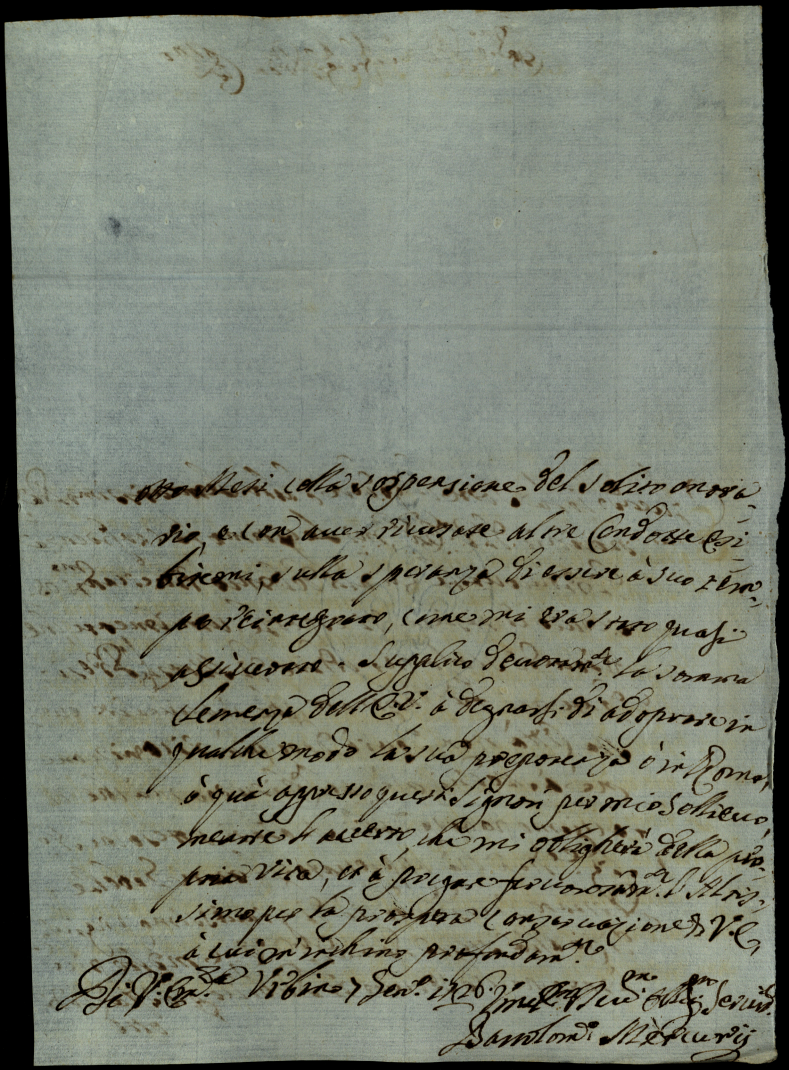 otto Mesi colla sospensione del solito onora-
rio, e con auer ricusate altre Condotte esi-
bitemi, sulla speranza di essere à suo tem-
po reintegrato, come mi era stato quasi
assicurato. Supplico deuotam.te la somma
Clemenza dell'E.V. à degnarsi di adoprare in
qualche modo la sua prepotenza ò in Roma,
ò quà appresso questi Signori per mio Sollieuo,
mentre l'accerto, che mi obligherà della pro-
pria Vita, et à pregare feruorosam.te l'Altis-
simo per la prospera conseruazione di V.E.
à cui m'inchino profondam.te
Di V.ra Em.za Vrbino 7 Gen.o 1726
Vmil.mo Diu.mo Oblig.mo Seruid.
Bartolom.o Mercurij